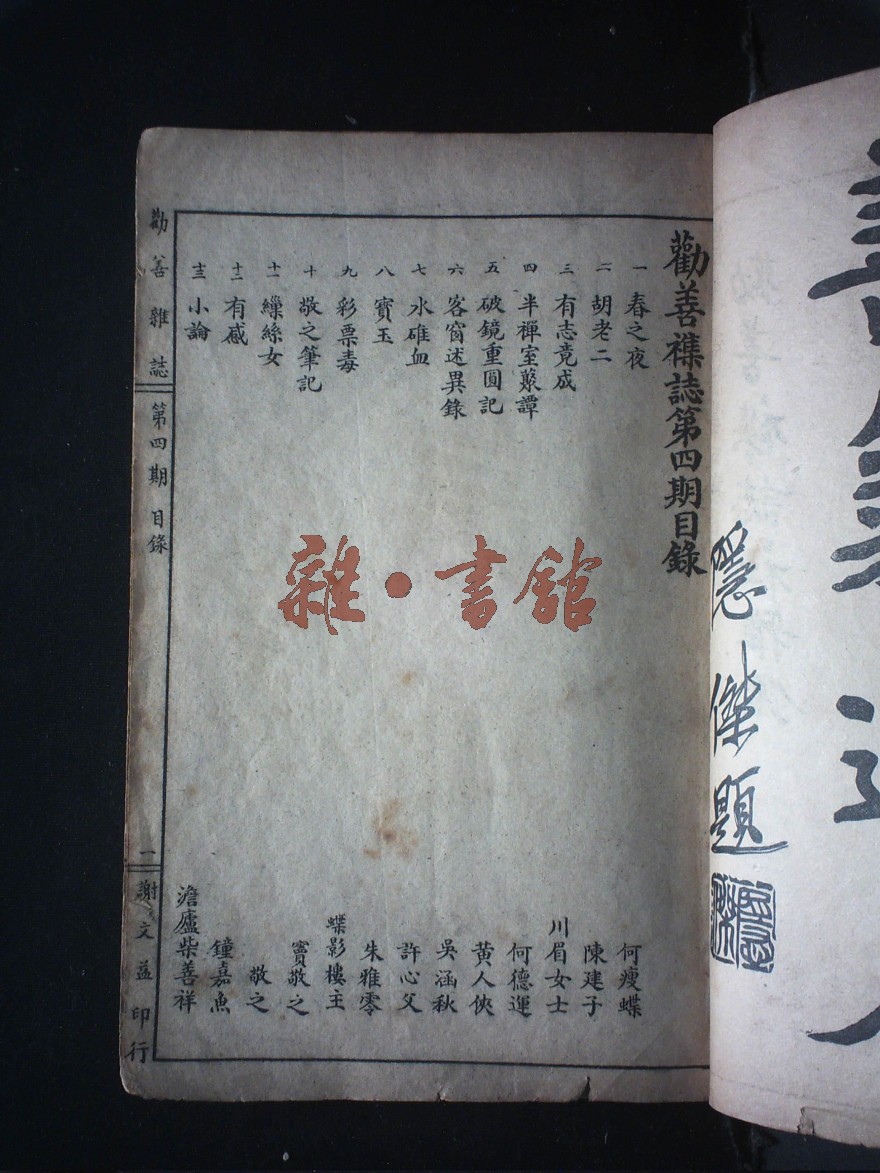 勸善襍誌第四期目錄
一 春之夜 何瘦蝶
二 胡老二 陳建子
三 有志竟成 川眉女士
四 半禪室蒙譚 何德運
五 破鏡重圓記 黃人俠
六 客窗述異錄 吳涵秋
七 水碓血 許心父
八 寶玉 朱雅零
九 彩票毒 蝶影樓主
十 敬之筆記 竇敬之
十一 繅絲女 敬之
十二 有感 鐘嘉魚
十三 小論 澹廬柴善祥
勸善雜誌 第四期 目錄 一 謝文益印行
雜·書館
隱傑題